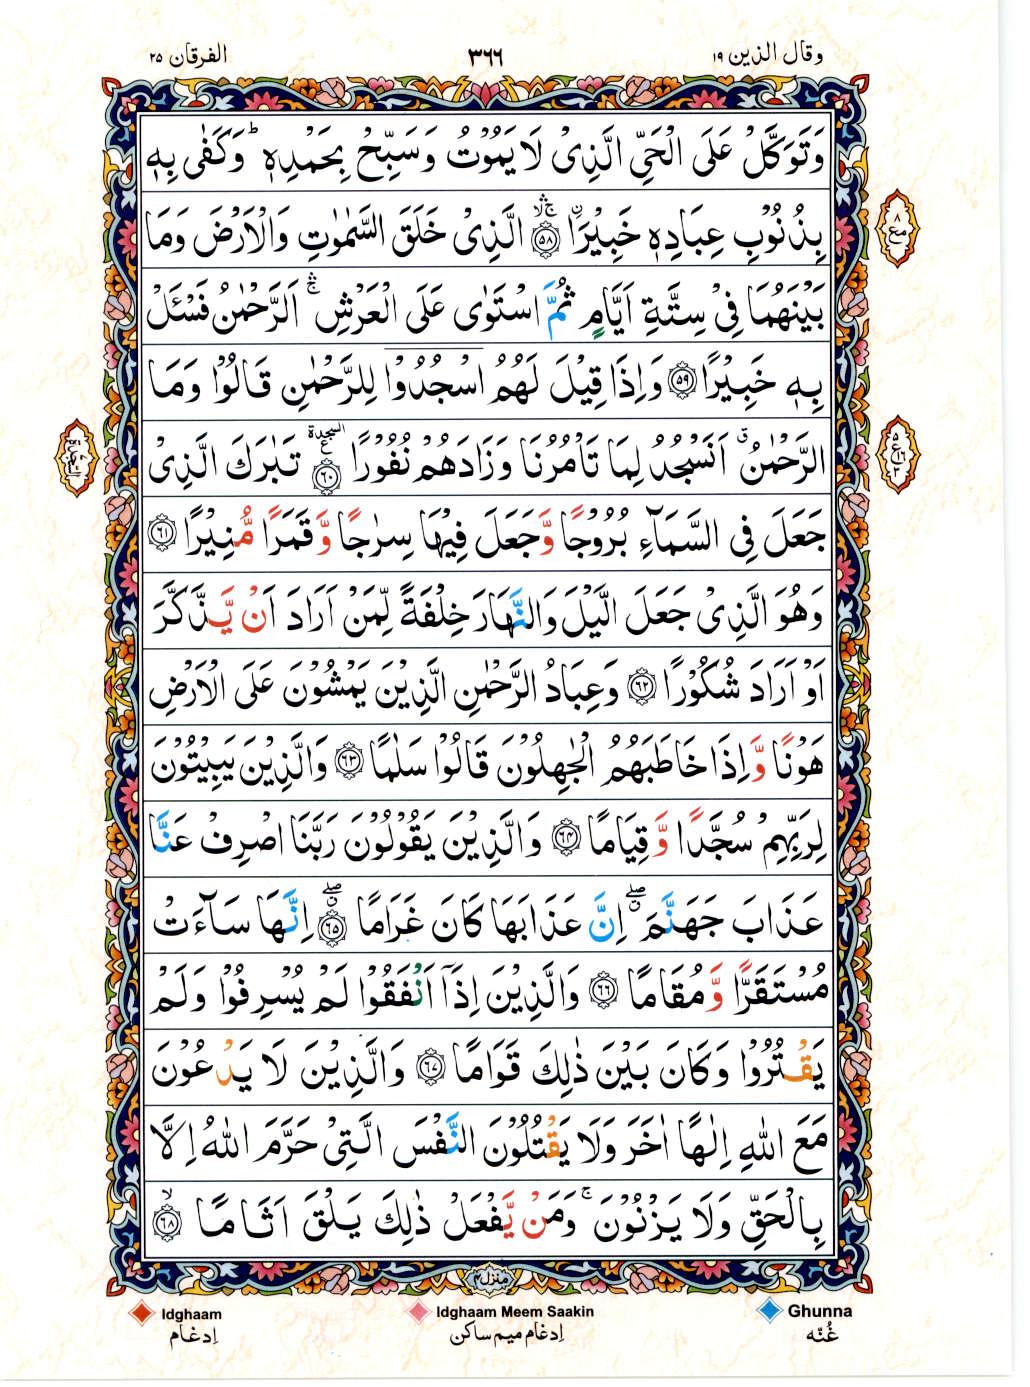 وقال الذين ۱۹
۳۶۶
الفرقان ۲۵
وَتَوَكَّلْ عَلَى الْحَىِّ الَّذِىْ لَا يَمُوْتُ وَسَبِّحْ بِحَمْدِهٖ ؕ وَكَفٰى بِهٖ
بِذُنُوْبِ عِبَادِهٖ خَبِيْرَا ۛۚ ۙ ۟﴿۵۸﴾ الَّذِىْ خَلَقَ السَّمٰوٰتِ وَالْاَرْضَ وَمَا
بَيْنَهُمَا فِىْ سِتَّةِ اَيَّامٍ ثُمَّ اسْتَوٰى عَلَى الْعَرْشِ ۛۚ اَلرَّحْمٰنُ فَسْئَلْ
بِهٖ خَبِيْرًا ﴿۵۹﴾ وَاِذَا قِيْلَ لَهُمُ اسْجُدُوْا لِلرَّحْمٰنِ قَالُوْا وَمَا
الرَّحْمٰنُ ۗ اَنَسْجُدُ لِمَا تَاْمُرُنَا وَزَادَهُمْ نُفُوْرًا السجدة ع ﴿۶۰﴾ تَبٰرَكَ الَّذِىْ
جَعَلَ فِى السَّمَآءِ بُرُوْجًا وَّجَعَلَ فِيْهَا سِرٰجًا وَّقَمَرًا مُّنِيْرًا ﴿۶۱﴾
وَهُوَ الَّذِىْ جَعَلَ الَّيْلَ وَالنَّهَارَ خِلْفَةً لِّمَنْ اَرَادَ اَنْ يَّذَّكَّرَ
اَوْ اَرَادَ شُكُوْرًا ﴿۶۲﴾ وَعِبَادُ الرَّحْمٰنِ الَّذِيْنَ يَمْشُوْنَ عَلَى الْاَرْضِ
هَوْنًا وَّاِذَا خَاطَبَهُمُ الْجٰهِلُوْنَ قَالُوْا سَلٰمًا ﴿۶۳﴾ وَالَّذِيْنَ يَبِيْتُوْنَ
لِرَبِّهِمْ سُجَّدًا وَّقِيَامًا ﴿۶۴﴾ وَالَّذِيْنَ يَقُوْلُوْنَ رَبَّنَا اصْرِفْ عَنَّا
عَذَابَ جَهَنَّمَ ۖ اِنَّ عَذَابَهَا كَانَ غَرَامًا ۖ ﴿۶۵﴾ اِنَّهَا سَآءَتْ
مُسْتَقَرًّا وَّمُقَامًا ﴿۶۶﴾ وَالَّذِيْنَ اِذَآ اَنْفَقُوْا لَمْ يُسْرِفُوْا وَلَمْ
يَقْتُرُوْا وَكَانَ بَيْنَ ذٰلِكَ قَوَامًا ﴿۶۷﴾ وَالَّذِيْنَ لَا يَدْعُوْنَ
مَعَ اللّٰهِ اِلٰهًا اٰخَرَ وَلَا يَقْتُلُوْنَ النَّفْسَ الَّتِىْ حَرَّمَ اللّٰهُ اِلَّا
بِالْحَقِّ وَلَا يَزْنُوْنَ ۚ وَمَنْ يَّفْعَلْ ذٰلِكَ يَلْقَ اَثَامًا ۙ ﴿۶۸﴾
مع ۸
السَّجْدَة
منزل ۴
Ghunna
Idghaam Meem Saakin
Idghaam
غُنّه
اِدغام میم ساکن
اِدغام